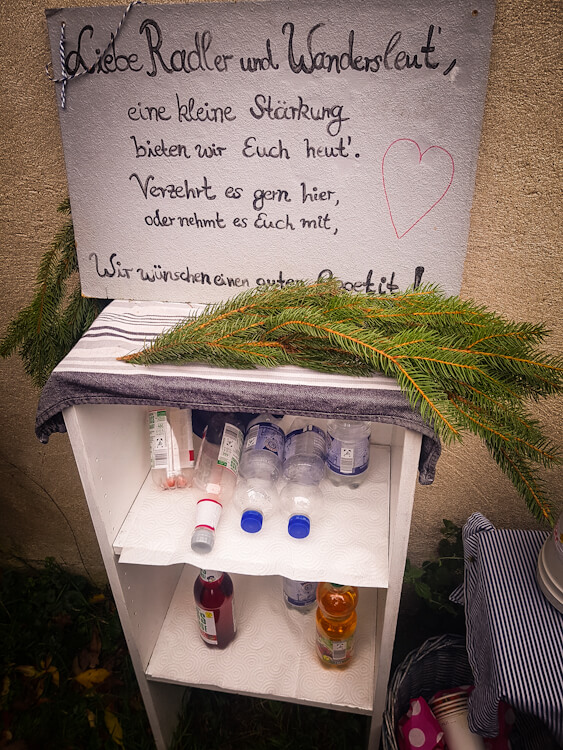 Liebe Radler und Wandersleut',
eine kleine Stärkung
bieten wir Euch heut'.
Verzehrt es gern hier,
oder nehmt es Euch mit,
Wir wünschen einen guten Appetit!